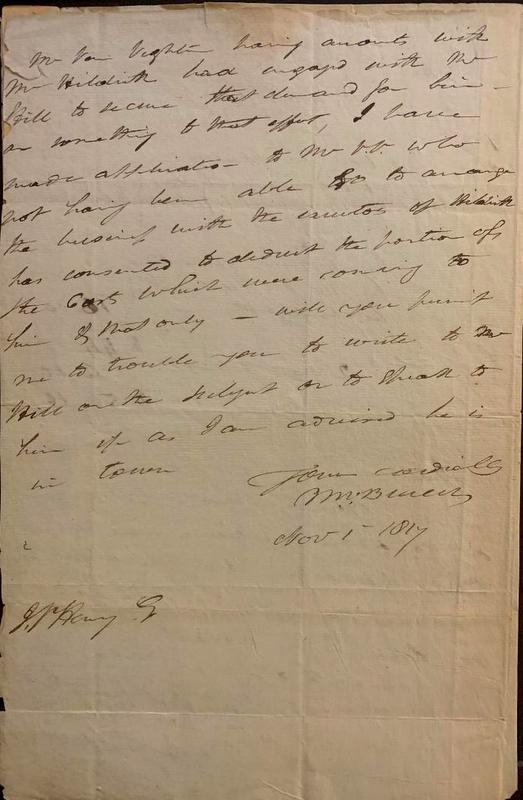 Mr Van Vighten having accounts with
Mr Hildrith had engaged with Mr
Hill to secure that demand for him –
or something to that effect, I have
made application to Mr V.V. who
not having been able to to arrange
the business with the executors of Hildrith
has consented to deduct the portion of
the Costs which were coming to
him & that only – will you permit
me to trouble you to write to Mr
Hill on the subject or to speak to
him if as I am advised he is
in town
Yours cordially
Nov 1 1817